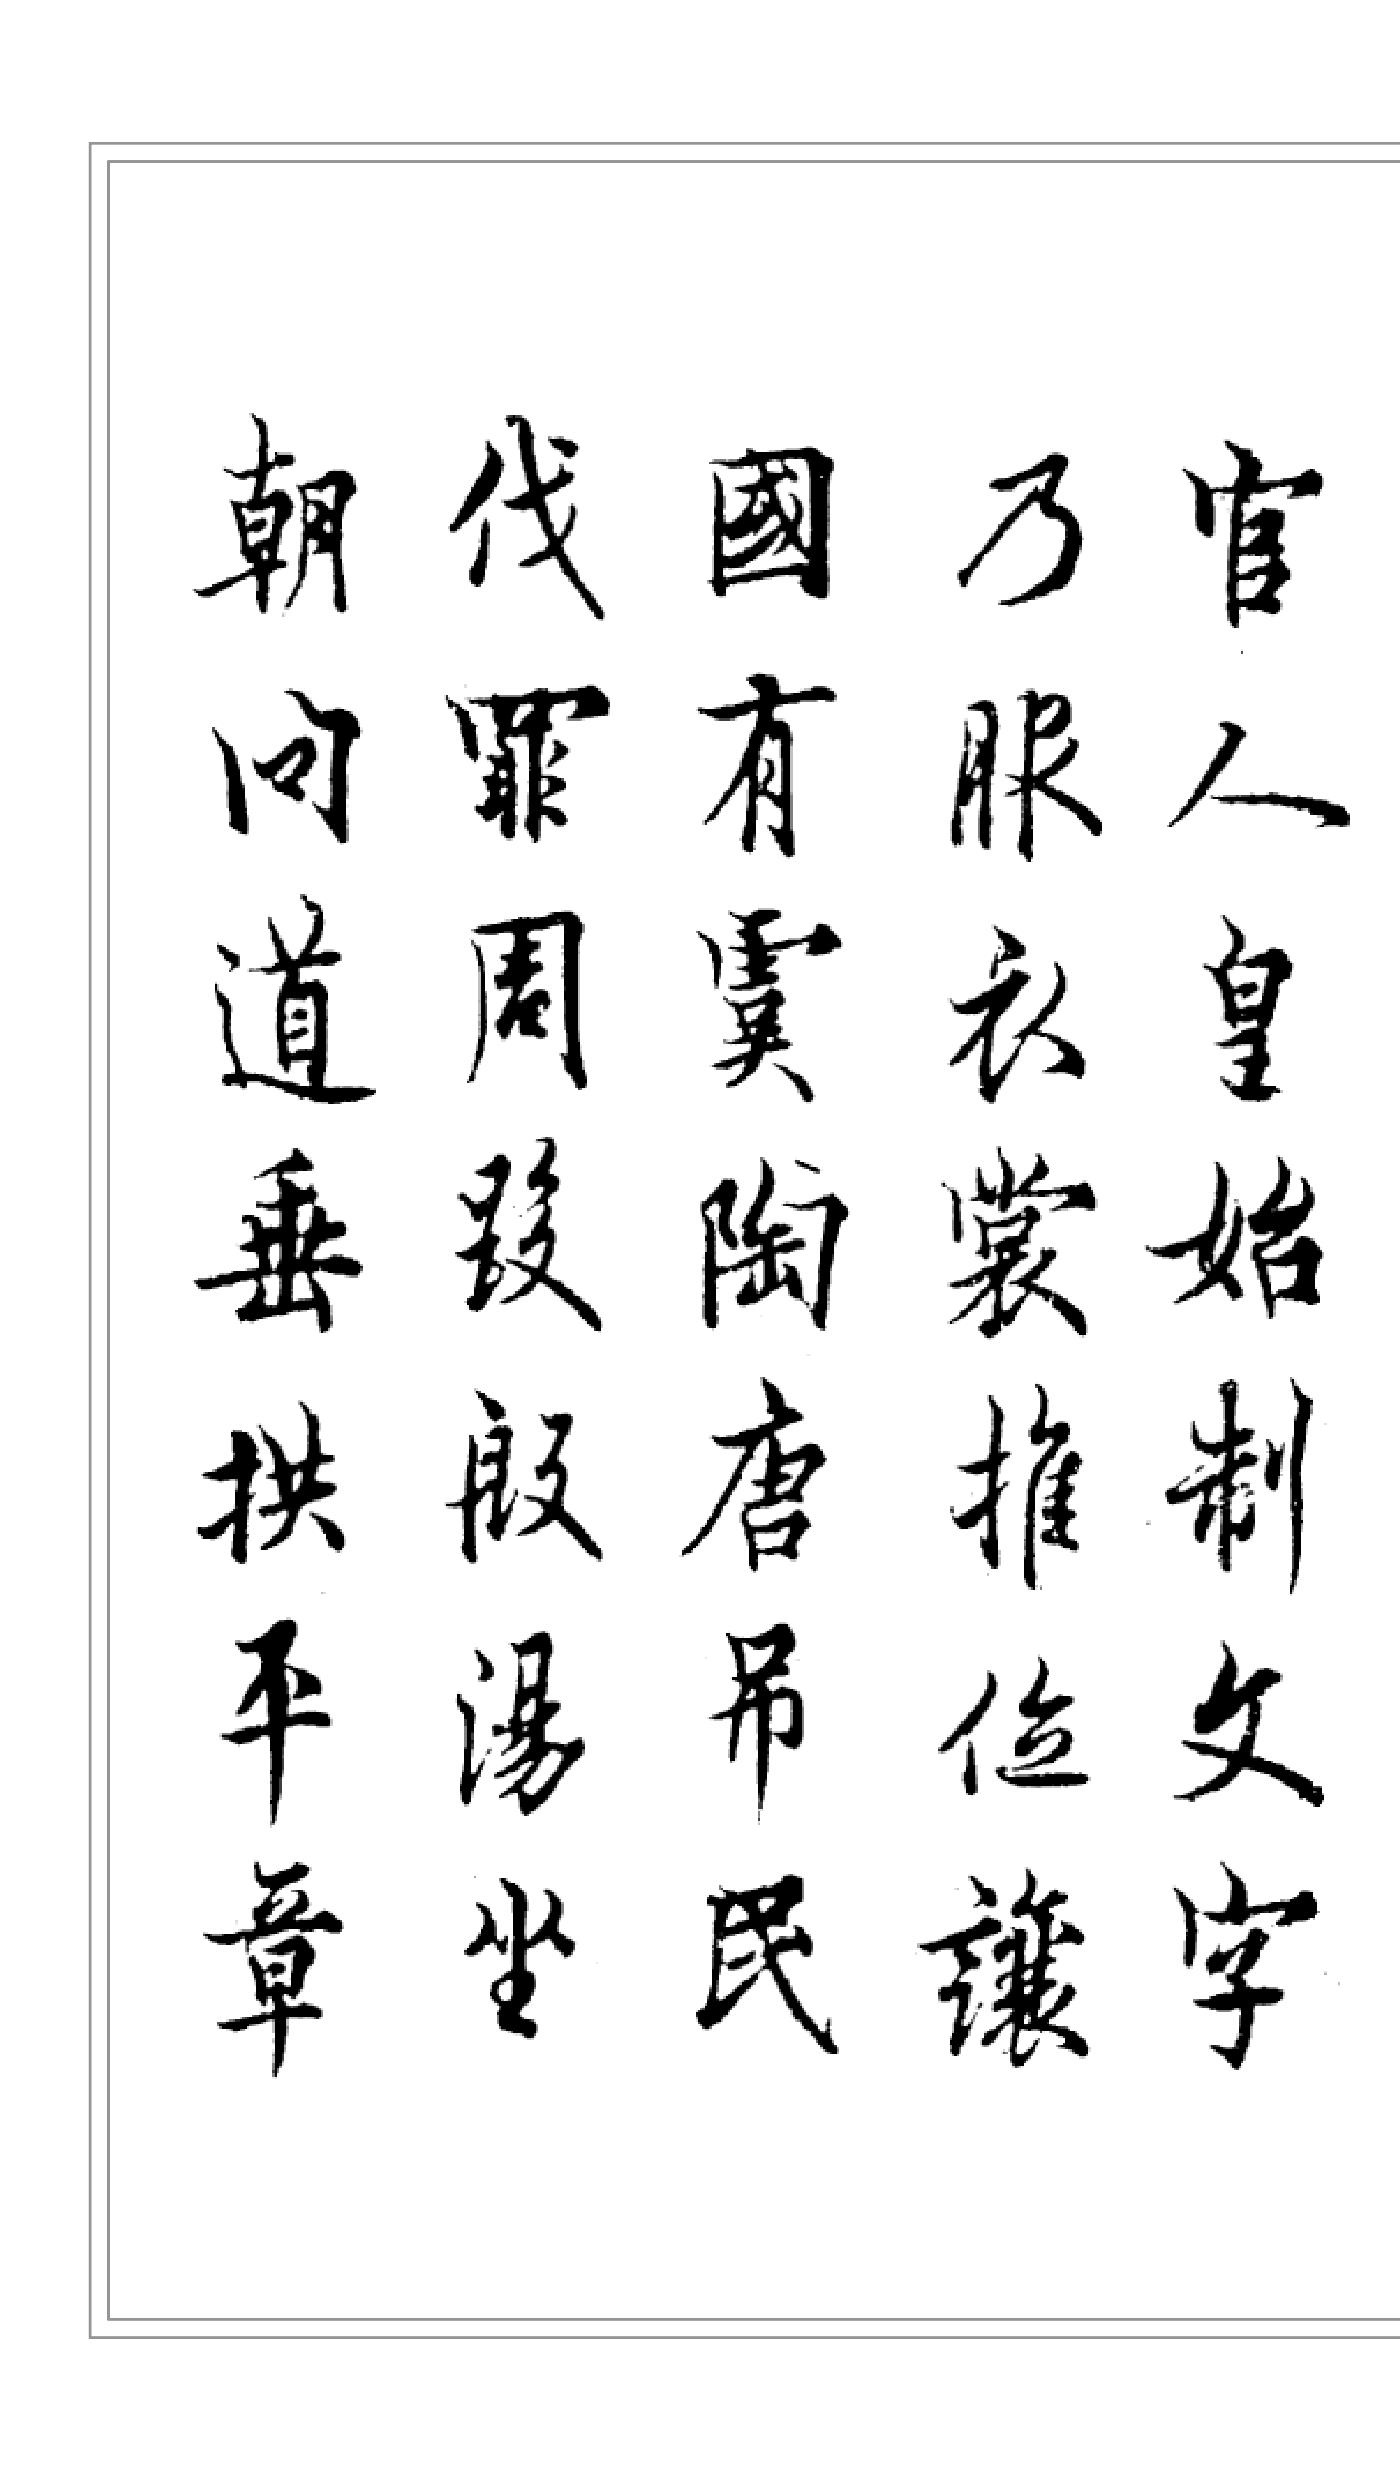 官人皇始制文字
乃服衣裳推位讓
國有虞陶唐吊民
伐罪周發殷湯坐
朝問道垂拱平章